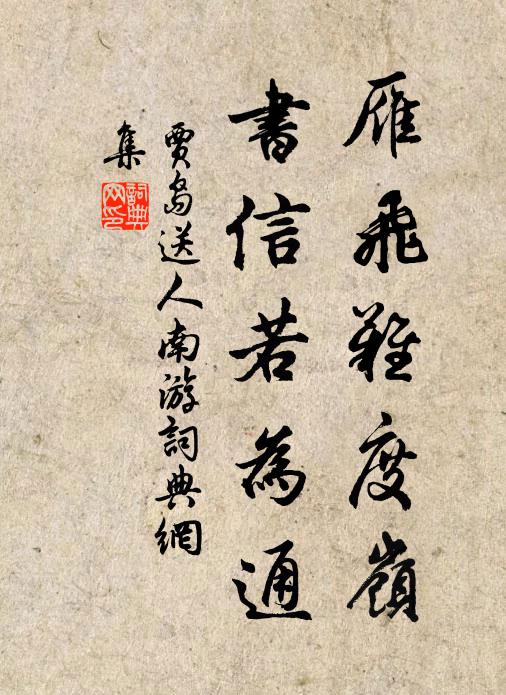 雁飛難度嶺
書信若為通
賈島送人南游詞典網
集
詞典網印